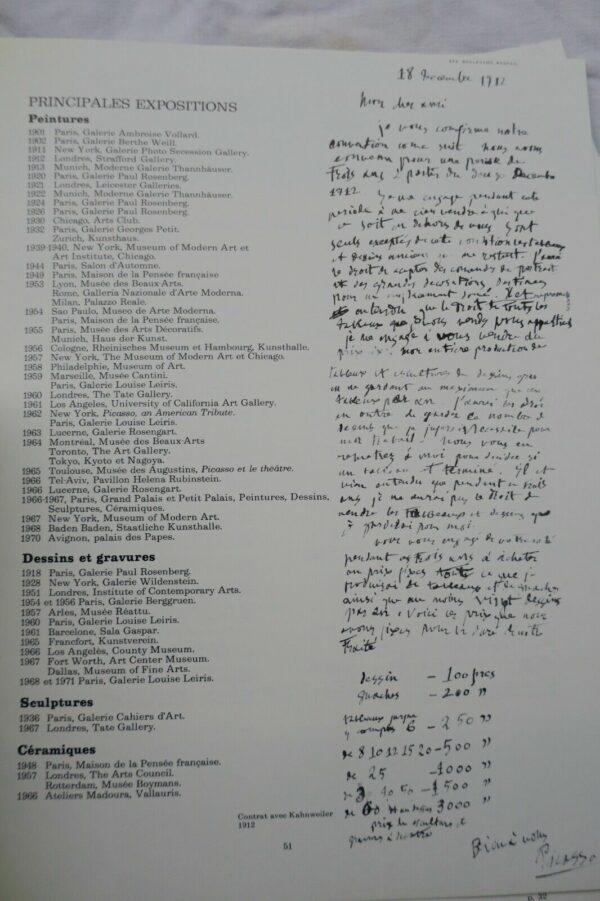 PRINCIPALES EXPOSITIONS
Peintures
1901 Paris, Galerie Ambroise Vollard.
1902 Paris, Galerie Berthe Weill.
1911 New York, Galerie Photo Secession Gallery.
1912 Londres, Strafford Gallery.
1913 Munich, Moderne Galerie Thannhäuser.
1920 Paris, Galerie Paul Rosenberg.
1921 Londres, Leicester Galleries.
1922 Munich, Moderne Galerie Thannhäuser.
1924 Paris, Galerie Paul Rosenberg.
1926 Paris, Galerie Paul Rosenberg.
1930 Chicago, Arts Club.
1932 Paris, Galerie Georges Petit.
Zurich, Kunsthaus.
1939-1940, New York, Museum of Modern Art et
Art Institute, Chicago.
1944 Paris, Salon d'Automne.
1949 Paris, Maison de la Pensée française
1953 Lyon, Musée des Beaux-Arts.
Rome, Galleria Nazionale d'Arte Moderna.
Milan, Palazzo Reale.
1954 Sao Paulo, Museo de Arte Moderna.
Paris, Maison de la Pensée française.
1955 Paris, Musée des Arts Décoratifs.
Munich, Haus der Kunst.
1956 Cologne, Rheinisches Museum et Hambourg, Kunsthalle.
1957 New York, The Museum of Modern Art et Chicago.
1958 Philadelphie, Museum of Art.
1959 Marseille, Musée Cantini.
Paris, Galerie Louise Leiris.
1960 Londres, The Tate Gallery.
1961 Los Angeles, University of California Art Gallery.
1962 New York, Picasso, an American Tribute.
Paris, Galerie Louise Leiris.
1963 Lucerne, Galerie Rosengart.
1964 Montréal, Musée des Beaux-Arts
Toronto, The Art Gallery.
Tokyo, Kyoto et Nagoya.
1965 Toulouse, Musée des Augustins, Picasso et le théâtre.
1966 Tel-Aviv, Pavillon Helena Rubinstein.
1966 Lucerne, Galerie Rosengart.
1966-1967, Paris, Grand Palais et Petit Palais, Peintures, Dessins,
Sculptures, Céramiques.
1967 New York, Museum of Modern Art.
1968 Baden Baden, Staatliche Kunsthalle.
1970 Avignon, palais des Papes.
Dessins et gravures
1918 Paris, Galerie Paul Rosenberg.
1928 New York, Galerie Wildenstein.
1951 Londres, Institute of Contemporary Arts.
1954 et 1956 Paris, Galerie Berggruen.
1957 Arles, Musée Réattu.
1960 Paris, Galerie Louise Leiris.
1961 Barcelone, Sala Gaspar.
1965 Francfort, Kunstverein.
1966 Los Angelès, County Museum.
1967 Fort Worth, Art Center Museum.
Dallas, Museum of Fine Arts.
1968 et 1971 Paris, Galerie Louise Leiris.
Sculptures
1936 Paris, Galerie Cahiers d'Art.
1967 Londres, Tate Gallery.
Céramiques
1948 Paris, Maison de la Pensée française.
1957 Londres, The Arts Council.
Rotterdam, Musée Boymans.
1966 Ateliers Madoura, Vallauris.
Contrat avec Kahnweiler
1912
51
18 Decembre 1912
Mon cher ami
je vous confirme notre
convention come suit nous nous
pour une periode de
trois ans a partir du
1912
pendant cete
periode a ne rien vendre a qui que
ce soit en dehors de vous Sont
seuls exceptés de cete
et dessins anciens qui me restent
le droit de
et des grandes decorations
je me engage à vous vendre
mon entière production de
en outre de garder ce nombre de
dessins que je jugerai necessaire pour
mon travail Vous vous en
si
un tableau est terminé. Il est
bien entendu que pendant ces trois
ans je ne aurai pas le droit de
vendre les tableaux et dessins que
je garderai pour moi
pendant ces trois ans à acheter
au prix fixes toute ce que je
ainsi que au moins vingt dessins
par an Voici les prix que nous
avons fixés pour la durée de notre
traité
dessin - 100
- 200 "
6 - 250 "
de 8 10 12 15 20 - 500 "
de 25 - 1000 "
- 1500 "
3000 "
Bien à vous
Picasso
p. 32